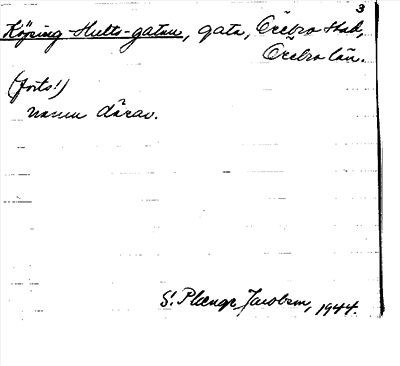 3
Köping-Hults-gatan, gata, Örebro stad,
Örebro län.
(forts!)
namn därav.
S. Jacobson, 1944.